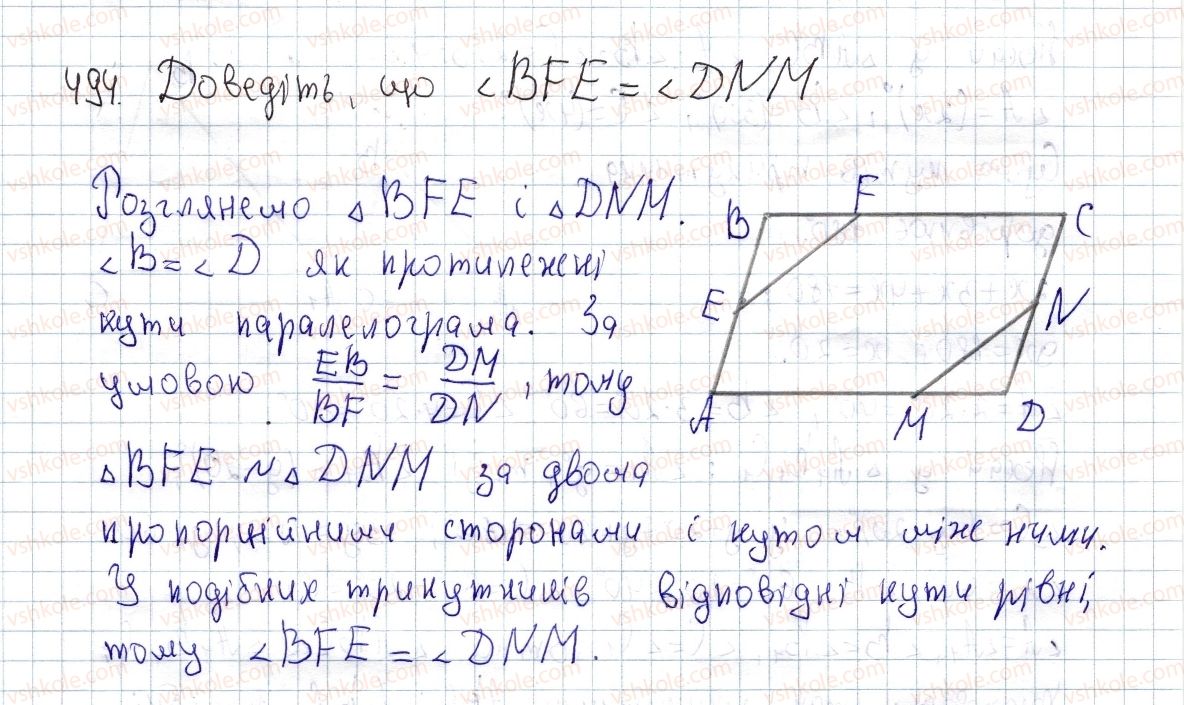 494. Доведіть, що ∠BFE = ∠DNM
Розглянемо △BFE і △DNM.
∠B = ∠D як протилежні
кути паралелограма. За
умовою EB/BF = DM/DN, тому
△BFE ∾ △DNM за двома
пропорційними сторонами і кутом між ними.
У подібних трикутників відповідні кути рівні,
тому ∠BFE = ∠DNM.
B F C
E N
A M D